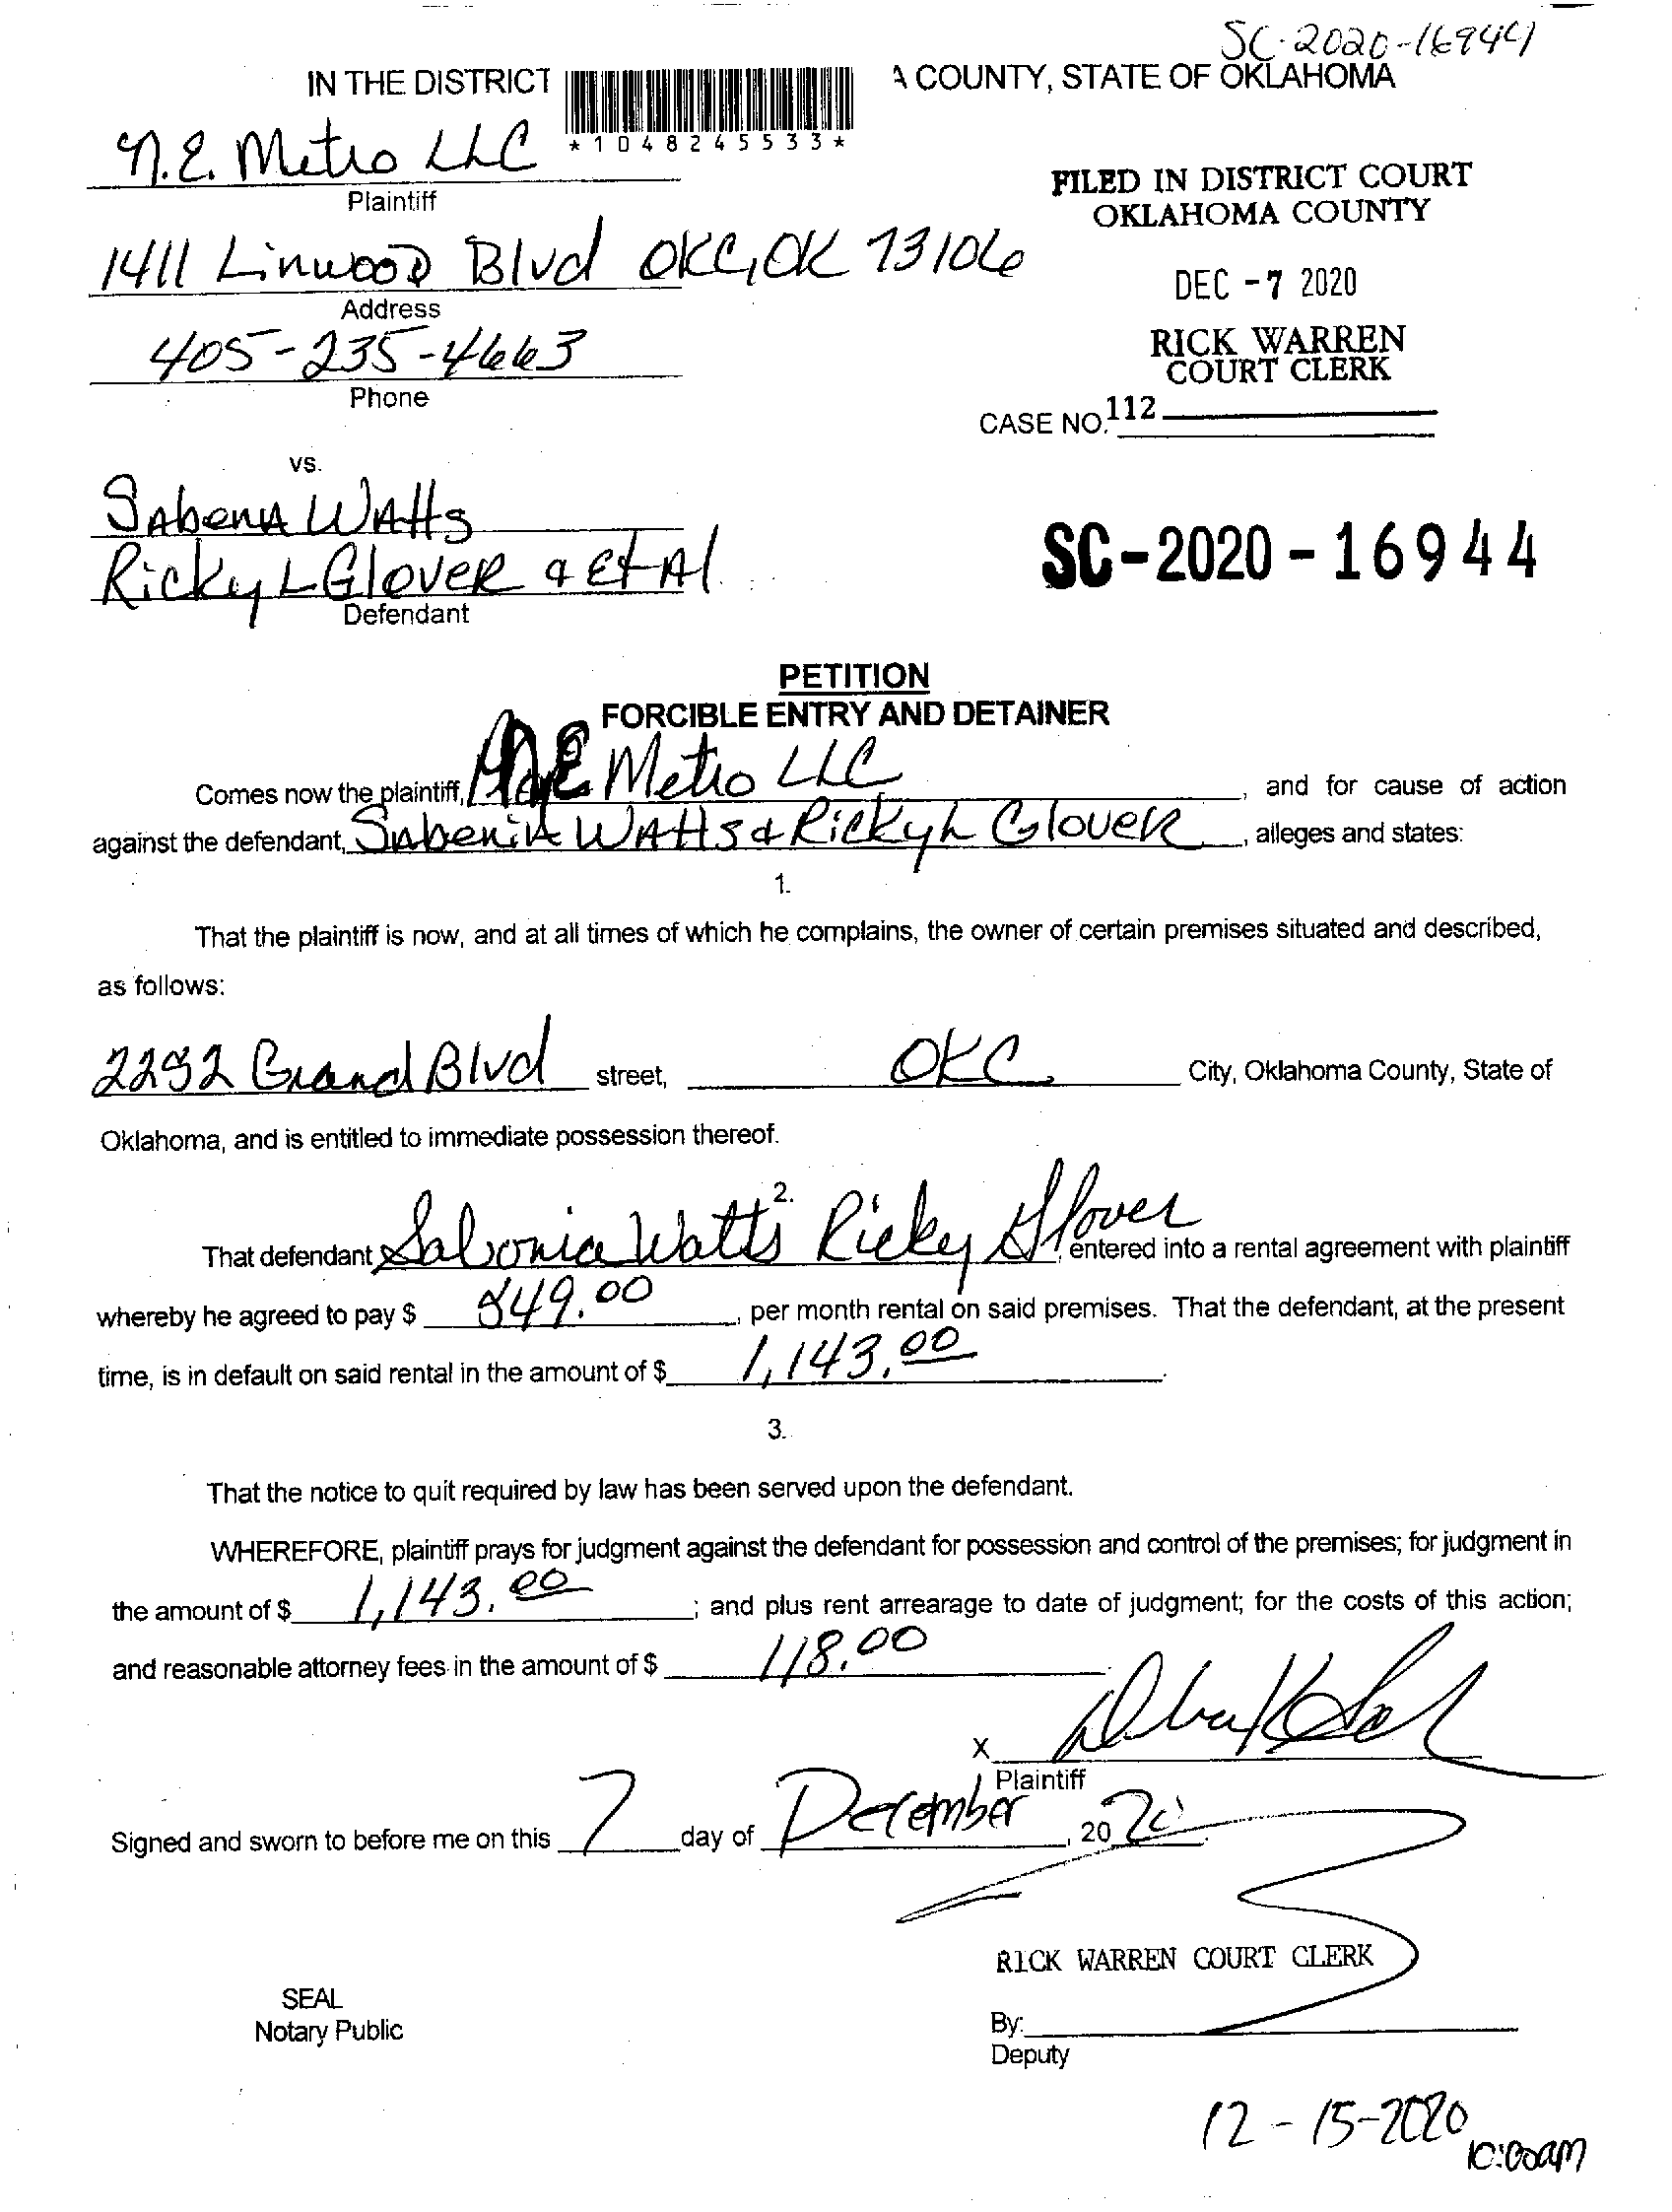 SC-2020-16944
IN THE DISTRICT A COUNTY, STATE OF OKLAHOMA
*1048245533*
N.E. Metro LLC
Plaintiff
FILED IN DISTRICT COURT
OKLAHOMA COUNTY
1411 Linwood Blvd OKC, OK 73106
Address
DEC -7 2020
405-235-4663
Phone
RICK WARREN
COURT CLERK
CASE NO. 112
vs.
Sabena Watts
Ricky L Glover & Et Al.
Defendant
SC-2020-16944
PETITION
FORCIBLE ENTRY AND DETAINER
Comes now the plaintiff, N.E. Metro LLC, and for cause of action
against the defendant, Watts & Ricky L Glover, alleges and states:
1.
That the plaintiff is now, and at all times of which he complains, the owner of certain premises situated and described,
as follows:
Grand Blvd street, OKC, City, Oklahoma County, State of
Oklahoma, and is entitled to immediate possession thereof.
2.
That defendant Watts Ricky Glover, entered into a rental agreement with plaintiff
whereby he agreed to pay $ 849.00, per month rental on said premises. That the defendant, at the present
time, is in default on said rental in the amount of $ 1,143.00.
3.
That the notice to quit required by law has been served upon the defendant.
WHEREFORE, plaintiff prays for judgment against the defendant for possession and control of the premises; for judgment in
the amount of $ 1,143.00; and plus rent arrearage to date of judgment; for the costs of this action;
and reasonable attorney fees in the amount of $ 118.00
X
Plaintiff
Signed and sworn to before me on this 7 day of December, 2020.
RICK WARREN COURT CLERK
SEAL
Notary Public
By:
Deputy
12-15-2020
10:00am